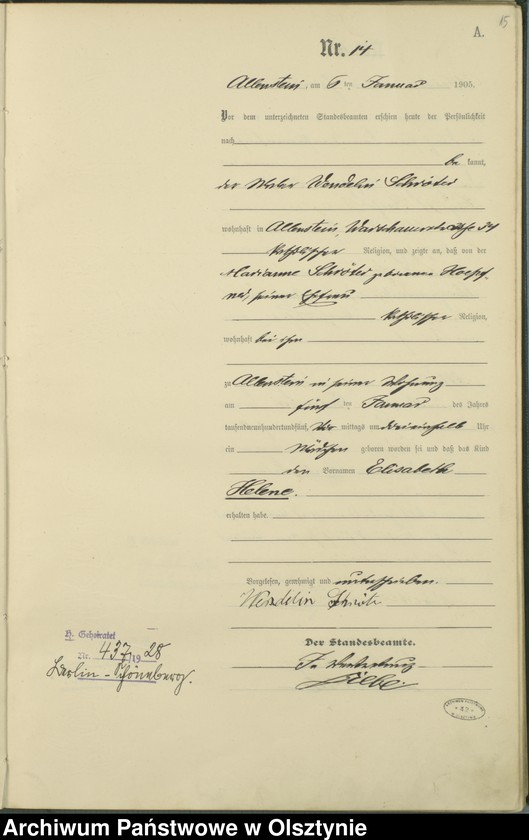 15
A.
Nr. 14
Allenstein, am 6 ten Januar 1905.
Vor dem unterzeichneten Standesbeamten erschien heute der Persönlichkeit
nach
be kannt,
der Maler Wendelin Schröter
wohnhaft in Allenstein, Warschauerstraße 34
katholischer Religion, und zeigte an, daß von der
Marianne Schröter geborenen Hoepf-
ner, seiner Ehefrau
katholischer Religion,
wohnhaft bei ihm
zu Allenstein in seiner Wohnung
am fünf ten Januar des Jahres
tausendneunhundertfünf, Vor mittags um Uhr
ein Mädchen geboren worden sei und daß das Kind
den Vornamen Elisabeth
Helene.
erhalten habe.
Vorgelesen, genehmigt und unterschrieben.
Wendelin Schröter
Der Standesbeamte.
In Vertretung
H. Geheiratet
Nr. 437/1928
Berlin-Schöneberg.
Archiwum Państwowe w Olsztynie